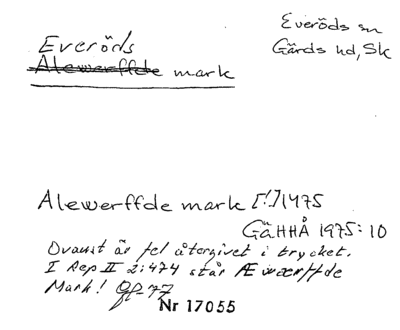 Everöds
Alewerffde mark
Everöds sn
Gärds hd, Sk
Alewerffde mark [!] 1475
GäHHÅ 1975:10
Ovanst är fel återgivet i trycket.
I Rep II 2:474 står Æwærffde
Mark!
Nr 17055